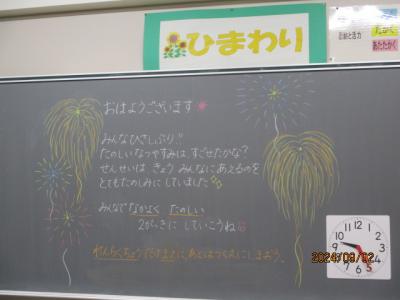 ひまわり
たかく
あたたかく
おはようございます
みんなひさしぶり!!
たのしいなつやすみは、すごせたかな?
せんせいは きょう みんなにあえるのを
とてもたのしみに していました
みんなで なかよく たのしい
2がっきに していこうね
2024/09/02